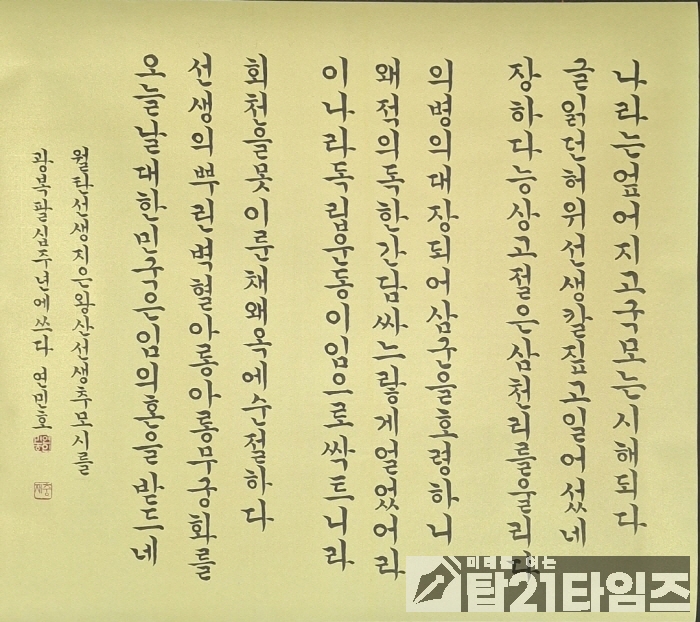 나라는엎어지고국모는시해되다
글읽던허위선생칼짚고일어섰네
장하다능상고절은삼천리를울리다
의병의대장되어삼군을호령하니
왜적의독한간담싸느랗게얼었어라
이나라독립운동이임으로싹트니라
회천을못이룬채왜옥에순절하다
선생의뿌린벽혈아롱아롱무궁화를
오늘날대한민국은임의혼을받드네
월탄선생지은왕산선생추모시를
광복팔십주년에쓰다 연민호
미래를 여는
탑21타임즈